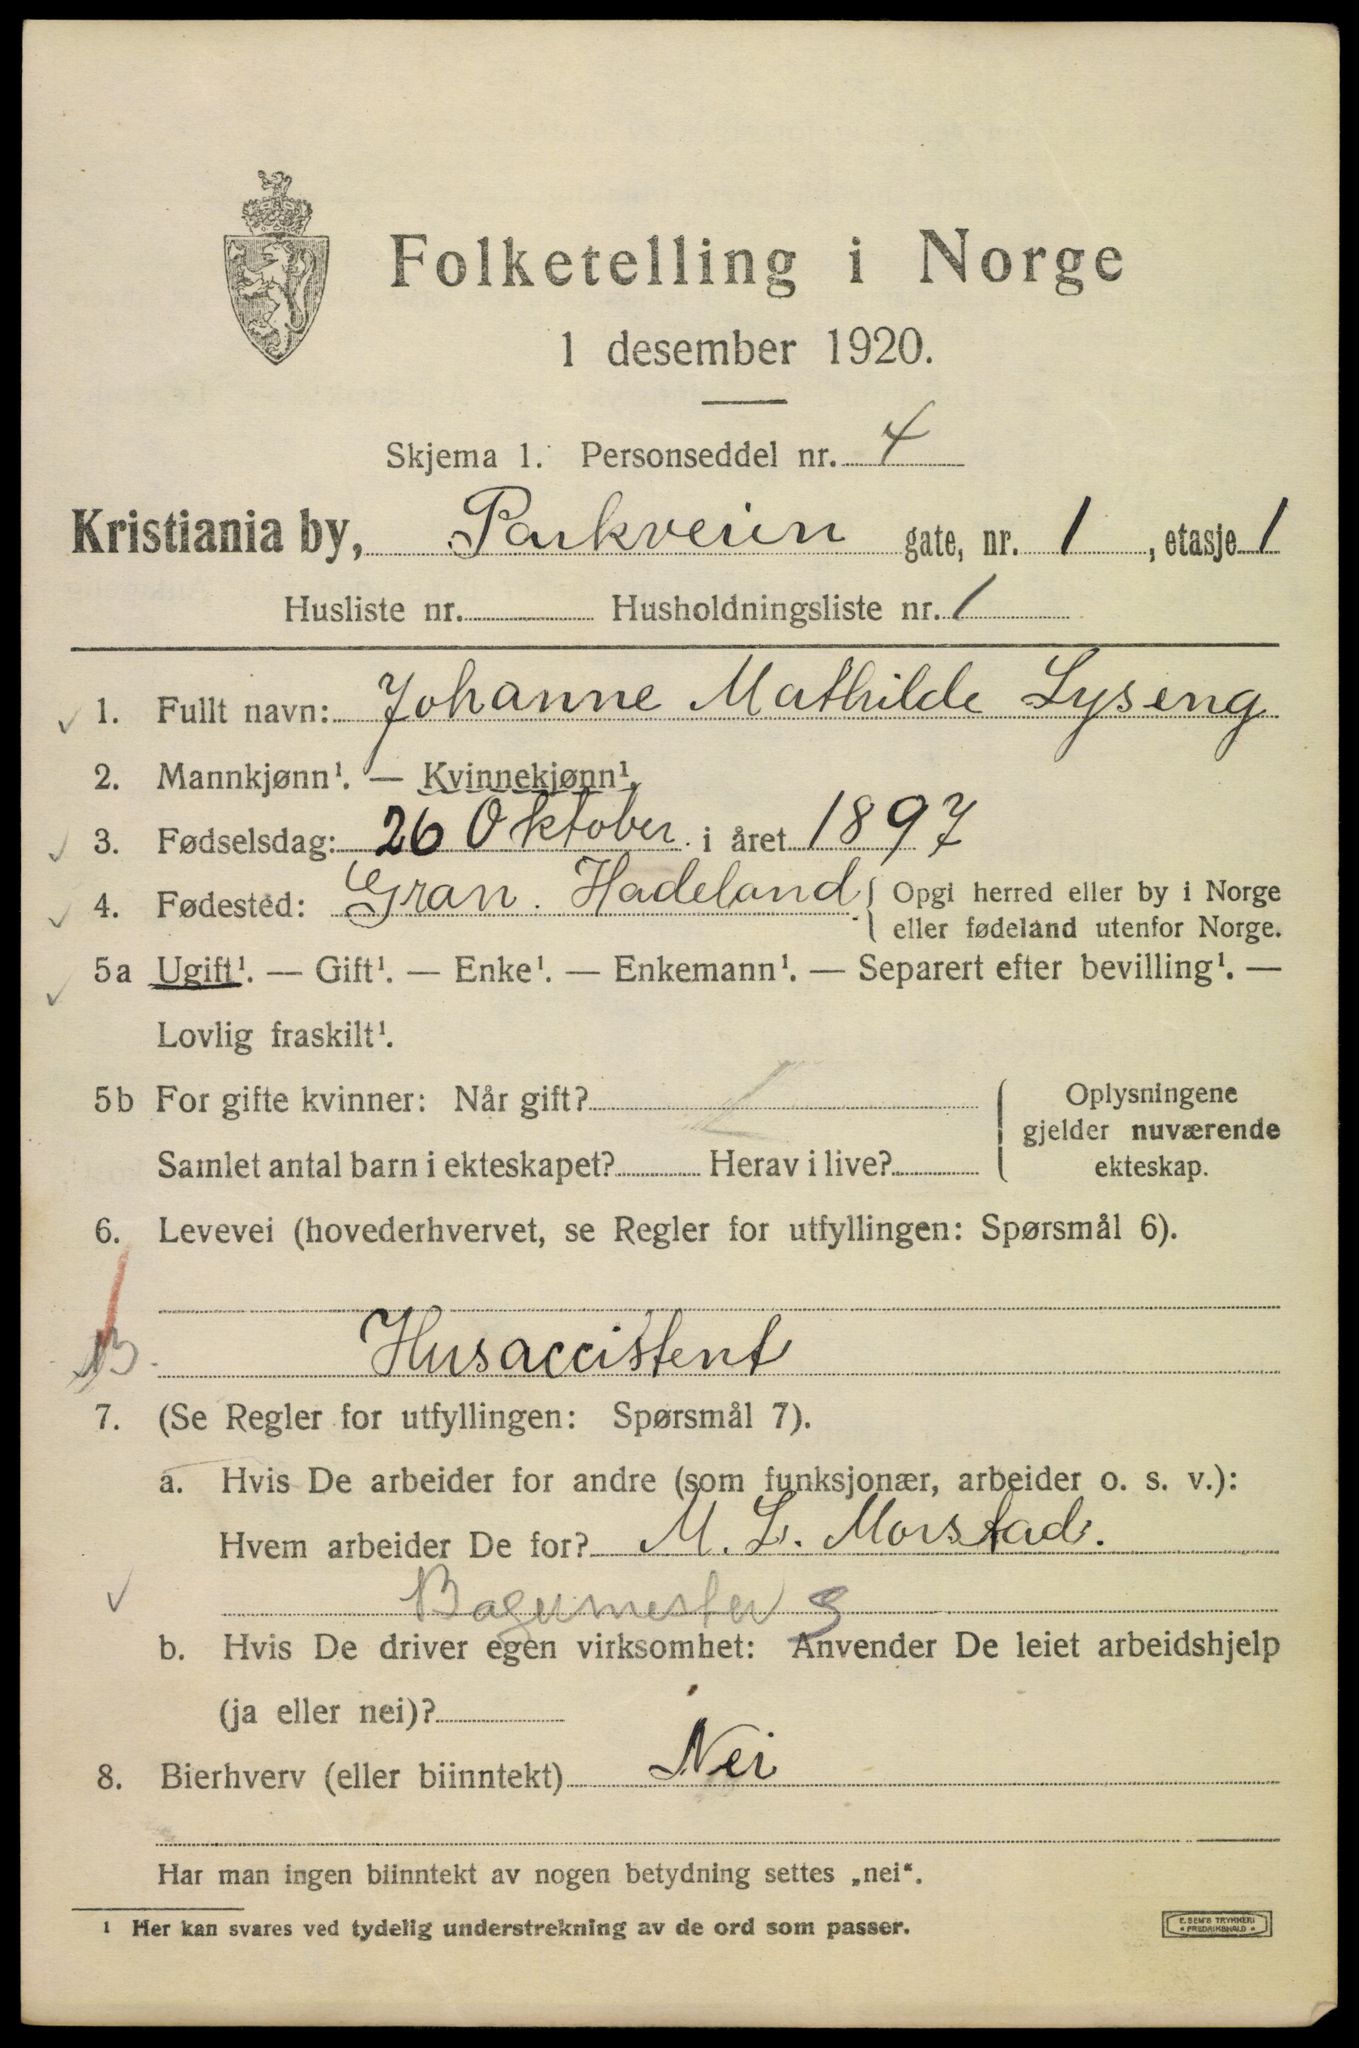 Folketelling i Norge
1 desember 1920.
Skjema 1. Personseddel nr. 4
Kristiania by, Parkveien gate, nr. 1, etasje 1
Husliste nr. Husholdningsliste nr. 1
1. Fullt navn: Johanne Mathilde Lyseng
2. Mannkjønn¹. — Kvinnekjønn¹.
3. Fødselsdag: 26 Oktober i året 1897
4. Fødested: Gran. Hadeland { Opgi herred eller by i Norge
eller fødeland utenfor Norge.
5a Ugift¹. — Gift¹. — Enke¹. — Enkemann¹. — Separert efter bevilling¹. —
Lovlig fraskilt¹.
5b For gifte kvinner: Når gift?
Samlet antal barn i ekteskapet? Herav i live?
Oplysningene
gjelder nuværende
ekteskap.
6. Levevei (hovederhvervet, se Regler for utfyllingen: Spørsmål 6).
Husaccistent
7. (Se Regler for utfyllingen: Spørsmål 7).
a. Hvis De arbeider for andre (som funksjonær, arbeider o. s. v.):
Hvem arbeider De for? M. L. Morstad.
Bagermester
b. Hvis De driver egen virksomhet: Anvender De leiet arbeidshjelp
(ja eller nei)?
8. Bierhverv (eller biinntekt) Nei
Har man ingen biinntekt av nogen betydning settes „nei“.
¹ Her kan svares ved tydelig understrekning av de ord som passer.
E. SEM'S TRYKKERI
FREDRIKSHALD